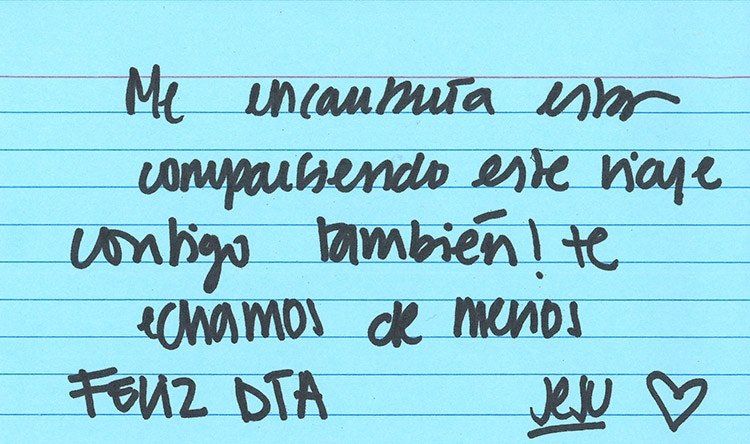 Me encantaría estar
compartiendo este viaje
contigo también! te
echamos de menos
FELIZ DÍA JESU